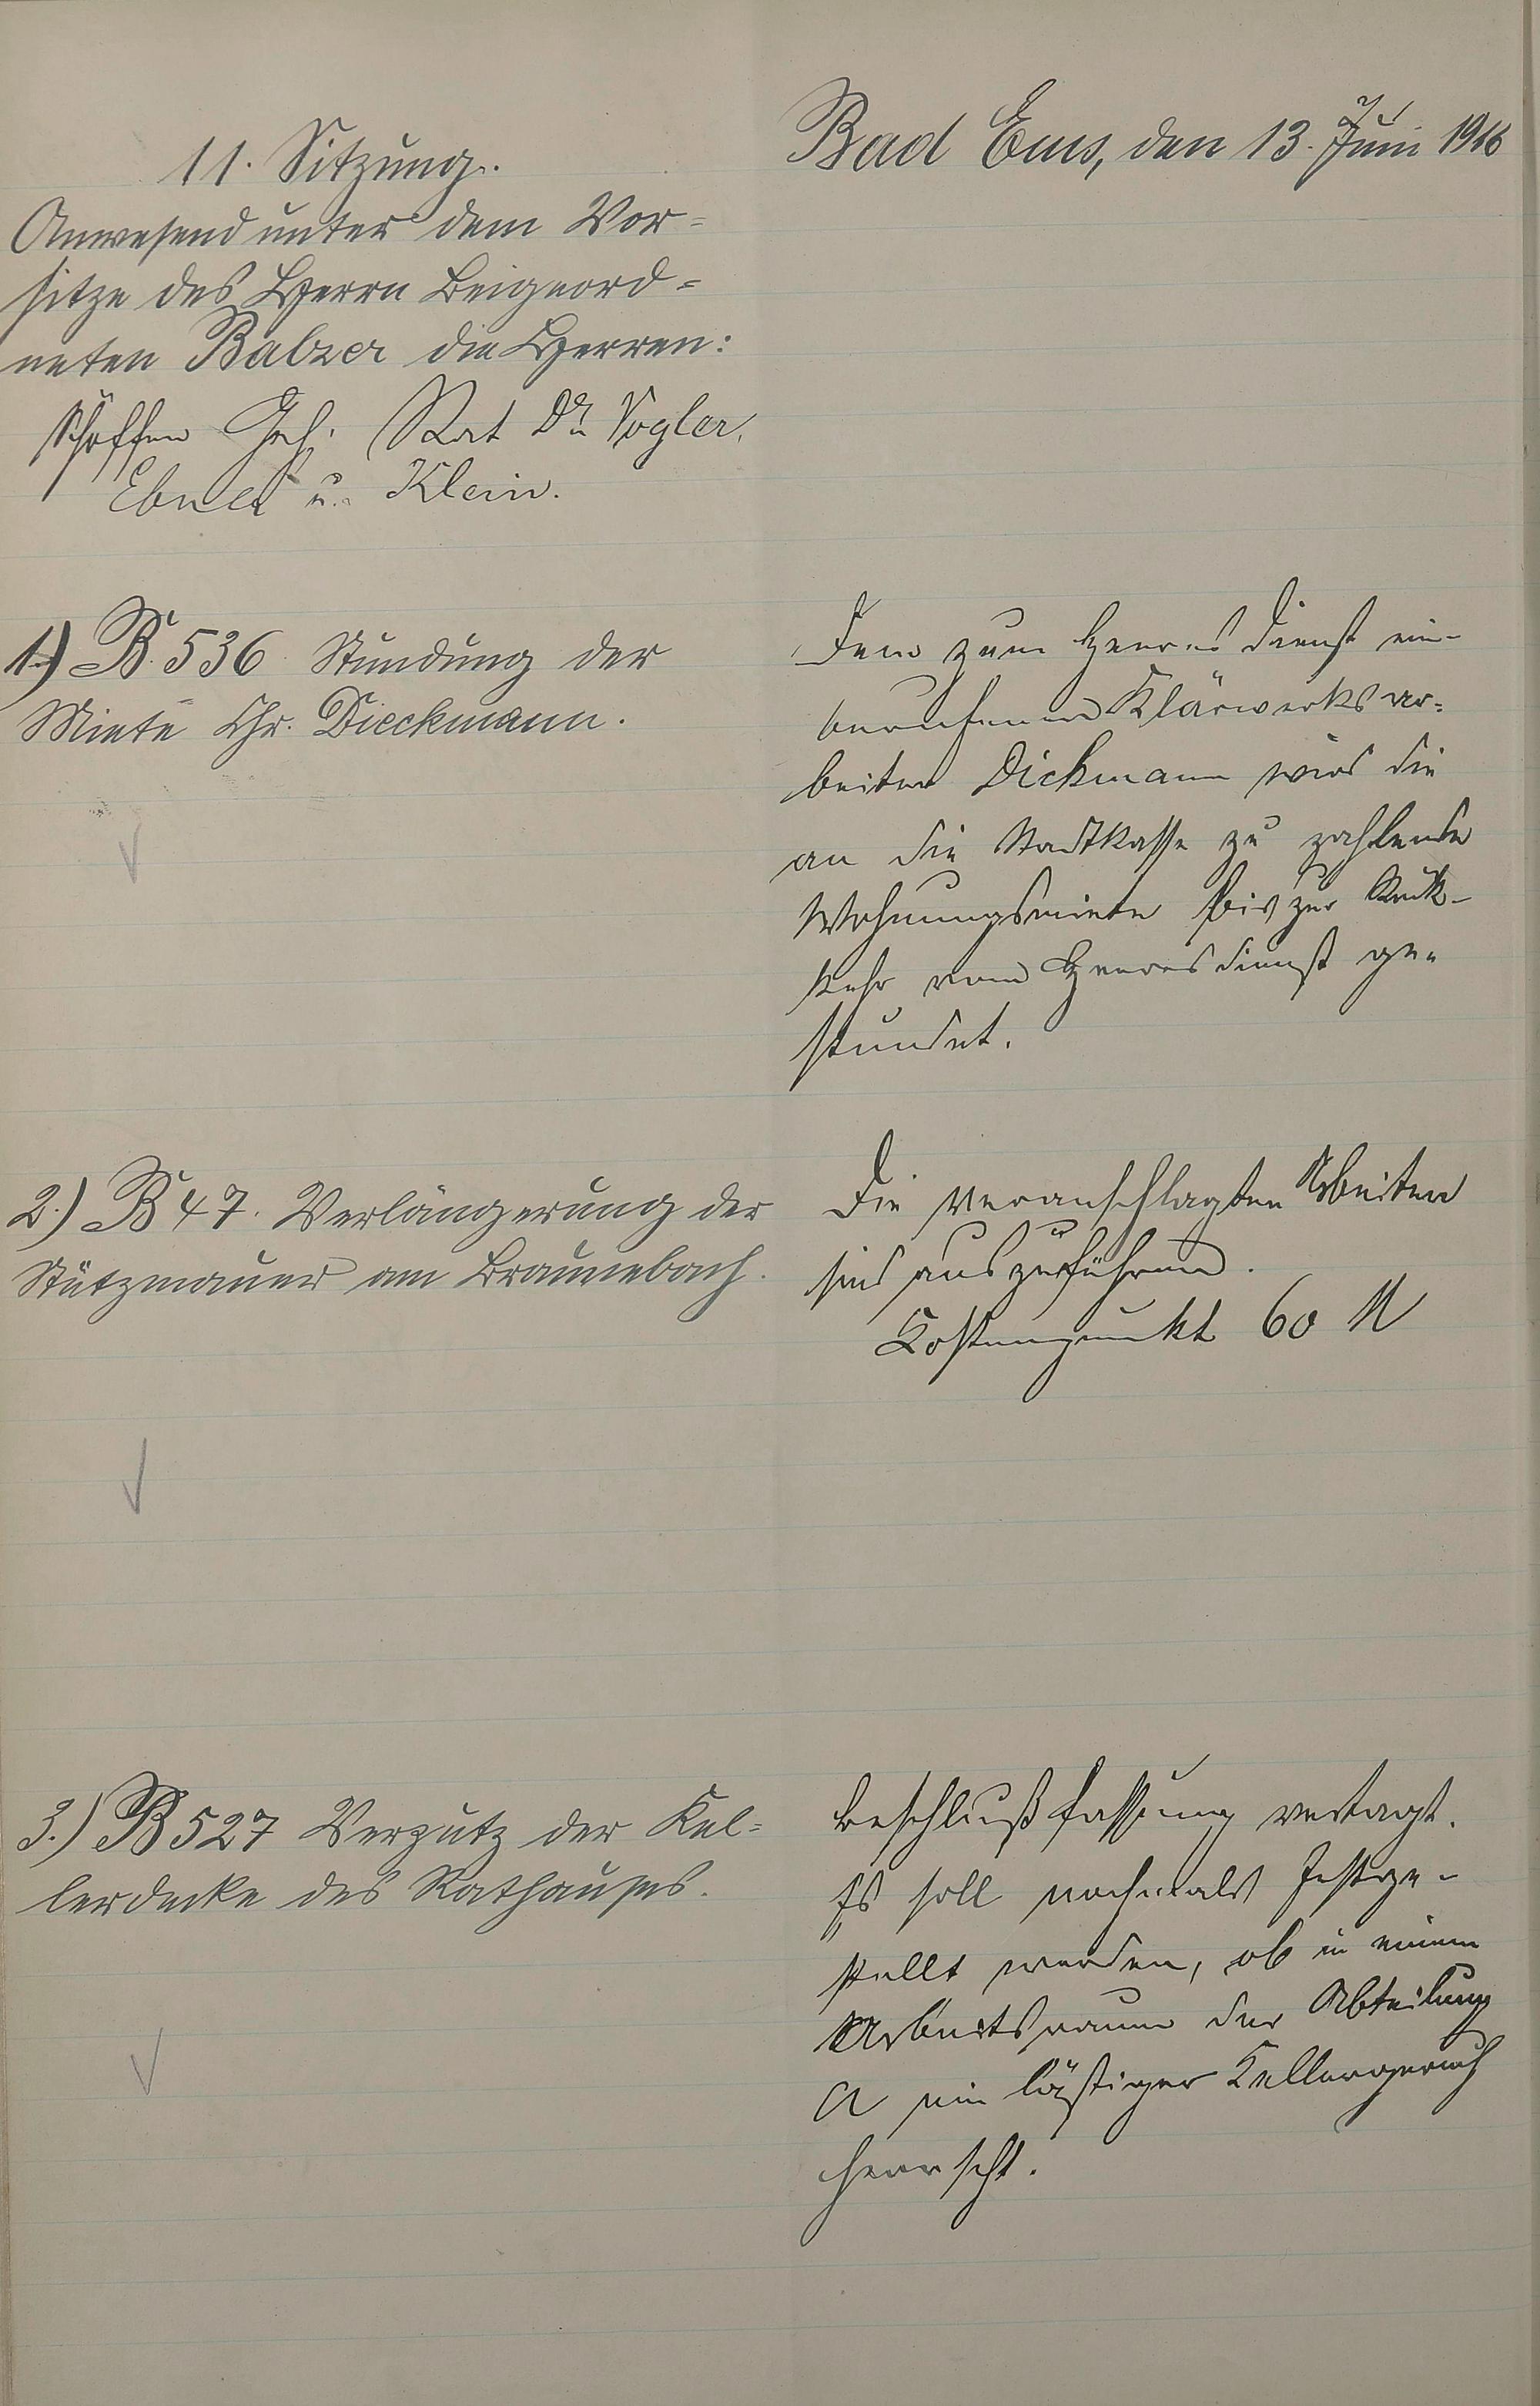 11. Sitzung.
Bad Ems, den 13. Juni 1916
Anwesend unter dem Vor=
sitze des Herrn Beigeord=
neten Balzer die Herren:
Schöffen Geh. Rat Dr. Vogler,
Ebner u. Klein.
1.) B. 536 Stundung der
Miete Chr. Dieckmann.
Dem zum Heeresdienst ein-
berufenen Klärwerksar=
beiter Dickmann wird die
an die Stadtkasse zu zahlende
Wohnungsmiete bis zur Rück-
kehr vom Heeresdienst ge=
stundet.
2.) B 47. Verlängerung der
Stützmauer am Braunebach.
Die veranschlagten Arbeiten
sind auszuführen.
Kostenpunkt 60 M
3.) B 527 Verputz der Kel=
lerdecke des Rathauses.
Beschlußfassung vertagt.
Es soll nochmals festge-
stellt werden, ob in einem
Arbeitsraum der Abteilung
A ein lästiger Kellergeruch
herrscht.